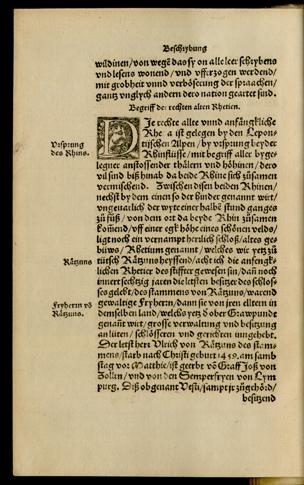 Beschrybung
wildinen/von wegē das sy on alle leer schrybens
vnd lesens wonend/vnd vfferzogen werdend/
mit grobheit vnnd verböserung der spraachen/
gantz vnglych andern dero nation geartet sind.
Begriff der rechten alten Rhetien.
DJe rechte alte vnnd anfängkliche
Rhetia ist gelegen by den Lepon-
Vrsprung
des Rhins.
tischen Alpen/by vrsprung beyder
Rhinflüsse/mit begriff aller byge-
legner anstossender thälern vnd höhinen/dero
vil sind biß hinab da beide Rhine sich zůsamen
vermischend. Zwischen disen beiden Rhinen/
nechst by dem einen so der hinder genannt wirt/
vngeuarlich der wyte einer halbē stund gangs
zů fůß/von dem ort da beyde Rhin zůsamen
kom̄end/vff einer egkhöhe eines schönen velds/
ligt noch ein vernampt herrlich schloß/altes ge-
büws/Rhetium genannt/welches wir yetz zů
Rätzuns
tütsch Rätzuns heyssend/acht ich die anfengk-
lichen Rhetier des stiffter gewesen sin/dañ noch
innert sechtzig jaren die letsten besitzer des schlos-
ses gelebt/des stammens von Rätzuns/warend
Fryherrn vō
Rätzuns.
gewaltige Fryherrn/dann sie von jren eltern in
demselben land/welchs yetz der ober Grawpundt
genañt wirt/grosse verwaltung vnd besitzung
an lüten/schlössern vnd gerichten inngehept.
Der letst herr Vlrich von Rätzuns des stam-
mens/starb nach Christi geburt 1459. am samb
stag vor Matthie/ist geerbt vō Graff Joß von
Zollrn/vnd von den Semperfryen von Lym
purg. Diß obgenant Vesti/sampt jr zůgehörd/
besitzend